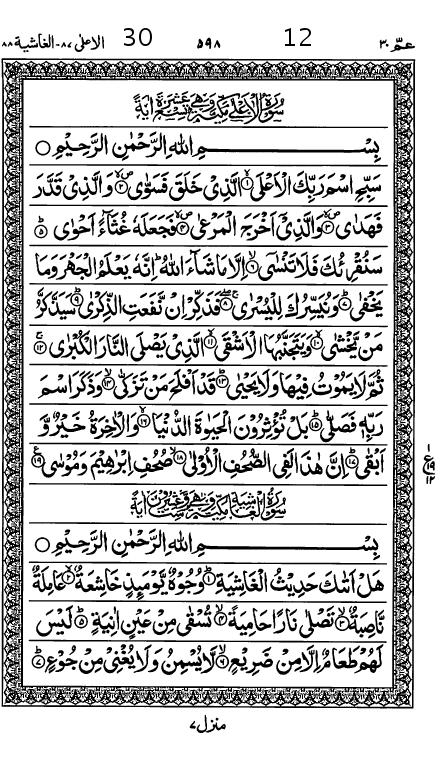 عمّ ۳۰ 12 ۵۹۸ 30 الاعلٰى ۸۷-الغاشية ۸۸
سُوْرَةُ الْاَعْلٰى مَكِّيَّةٌ وَّهِيَ تِسْعَ عَشْرَةَ اٰيَةً
بِسْــــــمِ اللهِ الرَّحْمٰنِ الرَّحِيْمِ ○
سَبِّحِ اسْمَ رَبِّكَ الْاَعْلَى ۙ﴿۱﴾ الَّذِيْ خَلَقَ فَسَوّٰى ۪ۙ﴿۲﴾ وَالَّذِيْ قَدَّرَ
فَهَدٰى ۪ۙ﴿۳﴾ وَالَّذِيْٓ اَخْرَجَ الْمَرْعٰى ۪ۙ﴿۴﴾ فَجَعَلَهٗ غُثَآءً اَحْوٰى ؕ﴿۵﴾
سَنُقْرِئُكَ فَلَا تَنْسٰٓى ۙ﴿۶﴾ اِلَّا مَا شَآءَ اللهُ ؕ اِنَّهٗ يَعْلَمُ الْجَهْرَ وَمَا
يَخْفٰى ؕ﴿۷﴾ وَنُيَسِّرُكَ لِلْيُسْرٰى ۚۖ﴿۸﴾ فَذَكِّرْ اِنْ نَّفَعَتِ الذِّكْرٰى ؕ﴿۹﴾ سَيَذَّكَّرُ
مَنْ يَّخْشٰى ۙ﴿۱۰﴾ وَيَتَجَنَّبُهَا الْاَشْقَى ۙ﴿۱۱﴾ الَّذِيْ يَصْلَى النَّارَ الْكُبْرٰى ۚ﴿۱۲﴾
ثُمَّ لَا يَمُوْتُ فِيْهَا وَلَا يَحْيٰى ؕ﴿۱۳﴾ قَدْ اَفْلَحَ مَنْ تَزَكّٰى ۙ﴿۱۴﴾ وَذَكَرَ اسْمَ
رَبِّهٖ فَصَلّٰى ؕ﴿۱۵﴾ بَلْ تُؤْثِرُوْنَ الْحَيٰوةَ الدُّنْيَا ۖ﴿۱۶﴾ وَالْاٰخِرَةُ خَيْرٌ وَّ
اَبْقٰى ؕ﴿۱۷﴾ اِنَّ هٰذَا لَفِي الصُّحُفِ الْاُوْلٰى ۙ﴿۱۸﴾ صُحُفِ اِبْرٰهِيْمَ وَمُوْسٰى ﴿۱۹﴾
۱
ع ۱۹
۱۲
سُوْرَةُ الْغَاشِيَةِ مَكِّيَّةٌ وَّهِيَ سِتٌّ وَّعِشْرُوْنَ اٰيَةً
بِسْــــــمِ اللهِ الرَّحْمٰنِ الرَّحِيْمِ ○
هَلْ اَتٰىكَ حَدِيْثُ الْغَاشِيَةِ ؕ﴿۱﴾ وُجُوْهٌ يَّوْمَىِٕذٍ خَاشِعَةٌ ۙ﴿۲﴾ عَامِلَةٌ
نَّاصِبَةٌ ۙ﴿۳﴾ تَصْلٰى نَارًا حَامِيَةً ۙ﴿۴﴾ تُسْقٰى مِنْ عَيْنٍ اٰنِيَةٍ ؕ﴿۵﴾ لَيْسَ
لَهُمْ طَعَامٌ اِلَّا مِنْ ضَرِيْعٍ ۙ﴿۶﴾ لَّا يُسْمِنُ وَلَا يُغْنِيْ مِنْ جُوْعٍ ؕ﴿۷﴾
منزل ۷